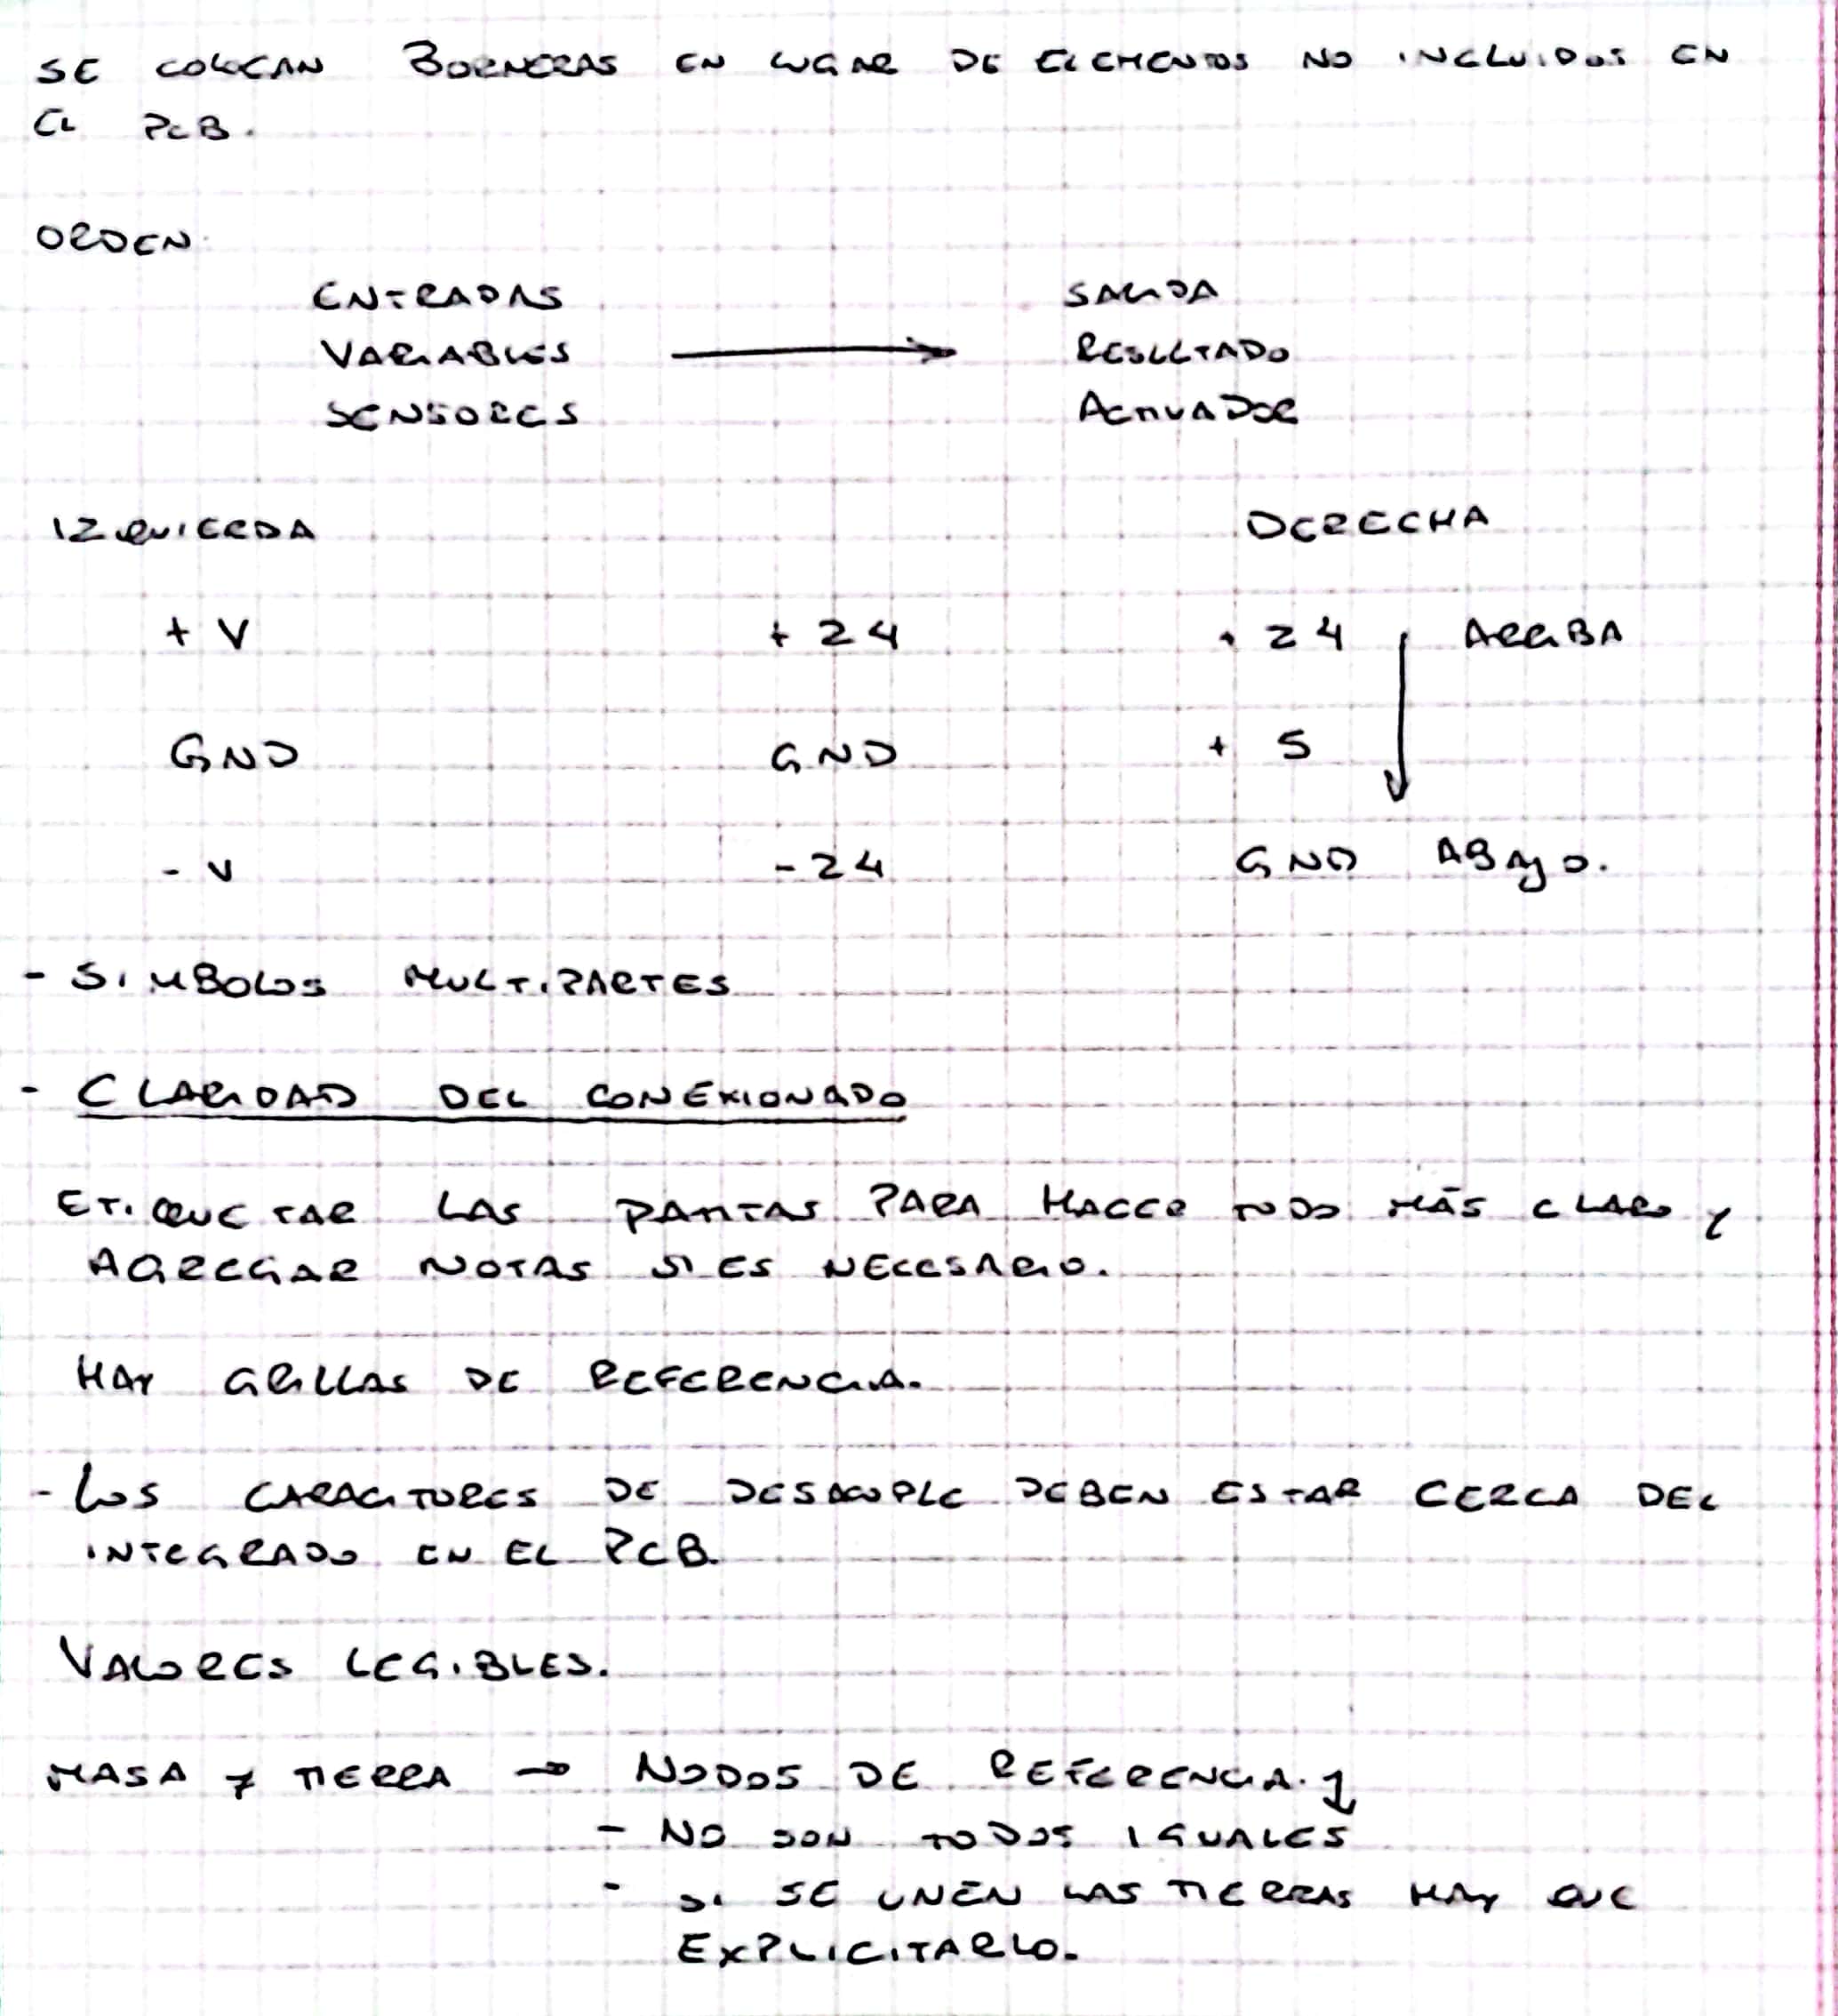 SE COLOCAN BORNERAS EN LUGAR DE ELEMENTOS NO INCLUIDOS EN
EL PCB.
ORDEN
ENTRADAS SALIDA
VARIABLES → RESULTADO
SENSORES ACTIVADOR
IZQUIERDA DERECHA
+ V + 24 + 24 ARRIBA
GND GND + 5
- V - 24 GND ABAJO.
- SIMBOLOS MULTIPARTES
- CLARIDAD DEL CONEXIONADO
ETIQUETAR LAS PARTES PARA HACER TODO MÁS CLARO Y
AGREGAR NOTAS SI ES NECESARIO.
HAY GRILLAS DE REFERENCIA.
- LOS CAPACITORES DE DESACOPLE DEBEN ESTAR CERCA DEL
INTEGRADO EN EL PCB.
VALORES LEGIBLES.
MASA Y TIERRA → NODOS DE REFERENCIA.
- NO SON TODOS IGUALES
- SI SE UNEN LAS TIERRAS HAY QUE
EXPLICITARLO.